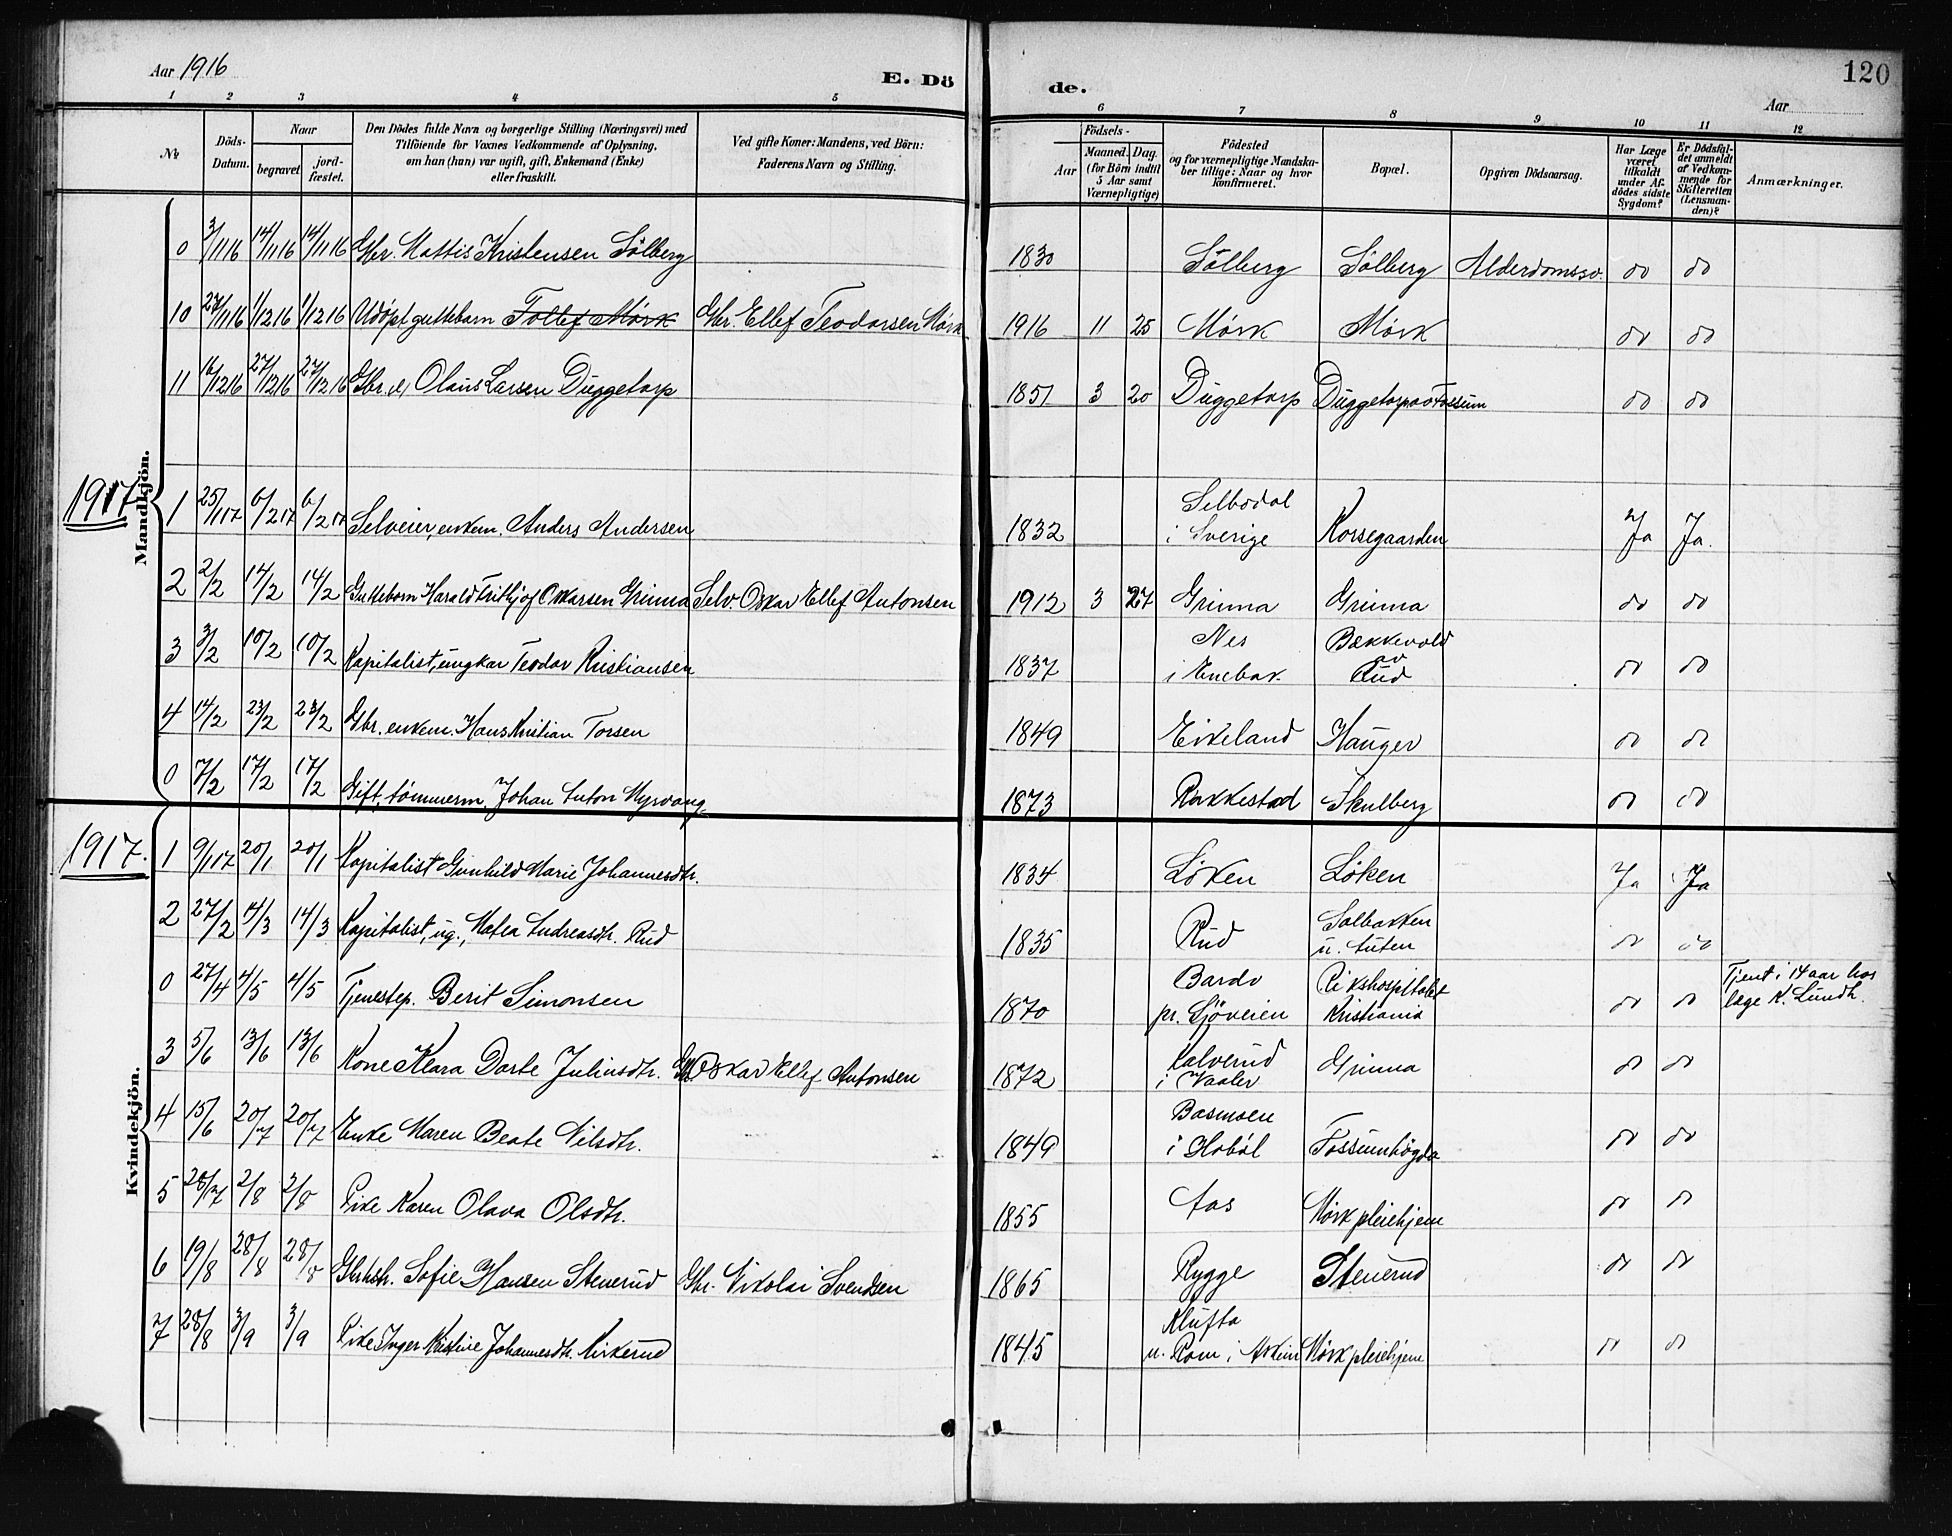 Aar 1916
E. Dö
de.
Aar
120
1 2 3 4 5 6 7 8 9 10 11 12
No
Döds-
Datum.
Naar
begravet
jord-
fæstet.
Den Dödes fulde Navn og borgerlige Stilling (Næringsvei) med
Tilföiende for Voxnes Vedkommende af Oplysning,
om han (hun) var ugift, gift, Enkemand (Enke)
eller fraskilt.
Ved gifte Koner: Mandens, ved Börn:
Faderens Navn og Stilling.
Födsels-
Aar
Maaned. Dag.
(for Börn indtil
5 Aar samt
Værnepligtige)
Födested
og for værnepligtige Mandska-
ber tillige: Naar og hvor
konfirmeret.
Bopæl.
Opgiven Dödsaarsag.
Har Læge
været
tilkaldt
under Af-
dödes sidste
Sygdom?
Er Dödsfal-
det anmeldt
af Vedkom-
mende for
Skifteretten
(Lensman-
den)?
Anmærkninger.
Mandkjön.
0 3/11 16 14/11 16 14/11 16 Gbr. Mattis Kristensen Sölberg 1830 Sölberg Sölberg Alderdomssv. do do
10 27/11 16 1/12 16 1/12 16 Udöpt guttebarn Tollef Mörk Gbr. Ellef Teodorsen Mörk 1916 11 25 Mörk Mörk do do
11 16/12 16 27/12 16 27/12 16 Gbr. Olaus Larsen Duggetorp 1851 3 20 Duggetorp Duggetorp av Fossum do do
1917
1 25/1 17 6/2 17 6/2 17 Selveier, enkem. Anders Andersen 1832 Selbodal
i Sverige Korsegaarden Ja Ja.
2 2/2 14/2 14/2 Guttebarn Harald Fritjof Oskarsen Grinna Selv. Oskar Ellef Antonsen 1912 3 27 Grinna Grinna do do
3 3/2 10/2 10/2 Kapitalist, ungkar Teodor Kristiansen 1837 Nes
i Enebak. Bækkevold
av
Rud do do
4 14/2 23/2 23/2 Gbr. enkem. Hans Kristian Torsen 1849 Eikeland Hauger do do
0 7/2 17/2 17/2 Gift, tömmerm. Johan Anton Myrvang 1873 Rakkestad Skulberg do do
1917.
Kvindekjön.
1 9/1 17 20/1 20/1 Kapitalist Gunhild Marie Johannesdtr. 1834 Löken Löken Ja Ja
2 27/2 14/3 14/3 Kapitalist, ug., Matea Andreasdtr. Rud 1835 Rud Solbakken
u. Auten do do
0 27/4 4/5 4/5 Tjenestep. Berit Simonsen 1870 Bardo
pr. Sjöveien Rikshospitalet
Kristiania do do Tjent i 14 aar hos
læge K. Lundh.
3 5/6 13/6 13/6 Kone Klara Dorte Juliusdtr. Gbr. Oskar Ellef Antonsen 1872 Kalverud
i Vaaler Grinna do do
4 15/6 20/7 20/7 Enke Maren Beate Nilsdtr. 1849 Basmoen
i Hoböl Fossumhögda do do
5 28/7 2/8 2/8 Pike Karen Olava Olsdtr. 1855 Aas Mörk pleiehjem do do
6 19/8 28/8 28/8 Gbrhstr. Sofie Hansen Stenerud Gbr. Nikolai Svendsen 1865 Rygge Stenerud do do
7 28/8 3/9 3/9 Pike Inger Kristine Johannesdtr. Kirkerud 1845 Klufta
u. Rom i Askim Mörk pleiehjem do do